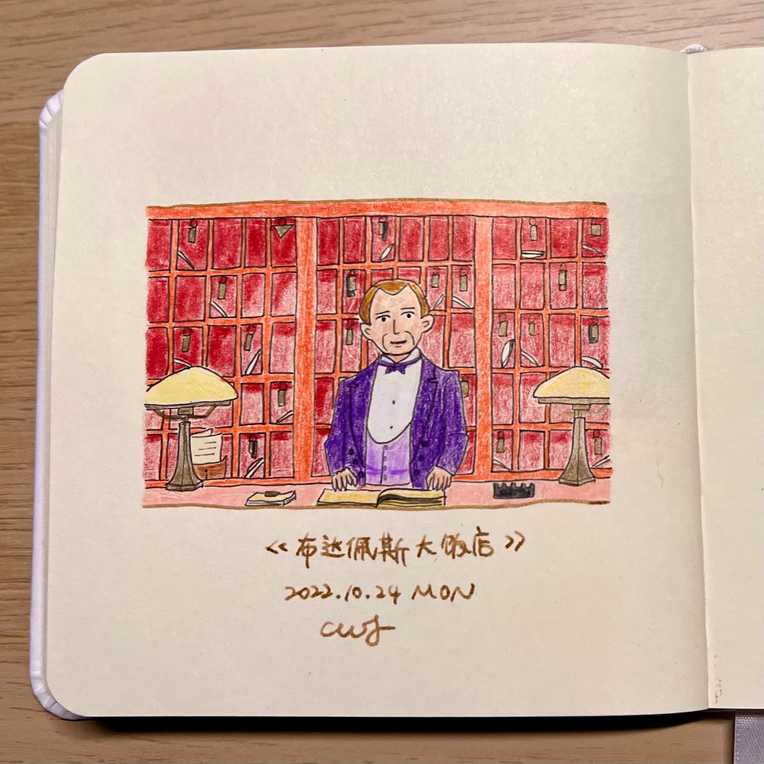 《布达佩斯大饭店》
2022.10.24 MON
cwj